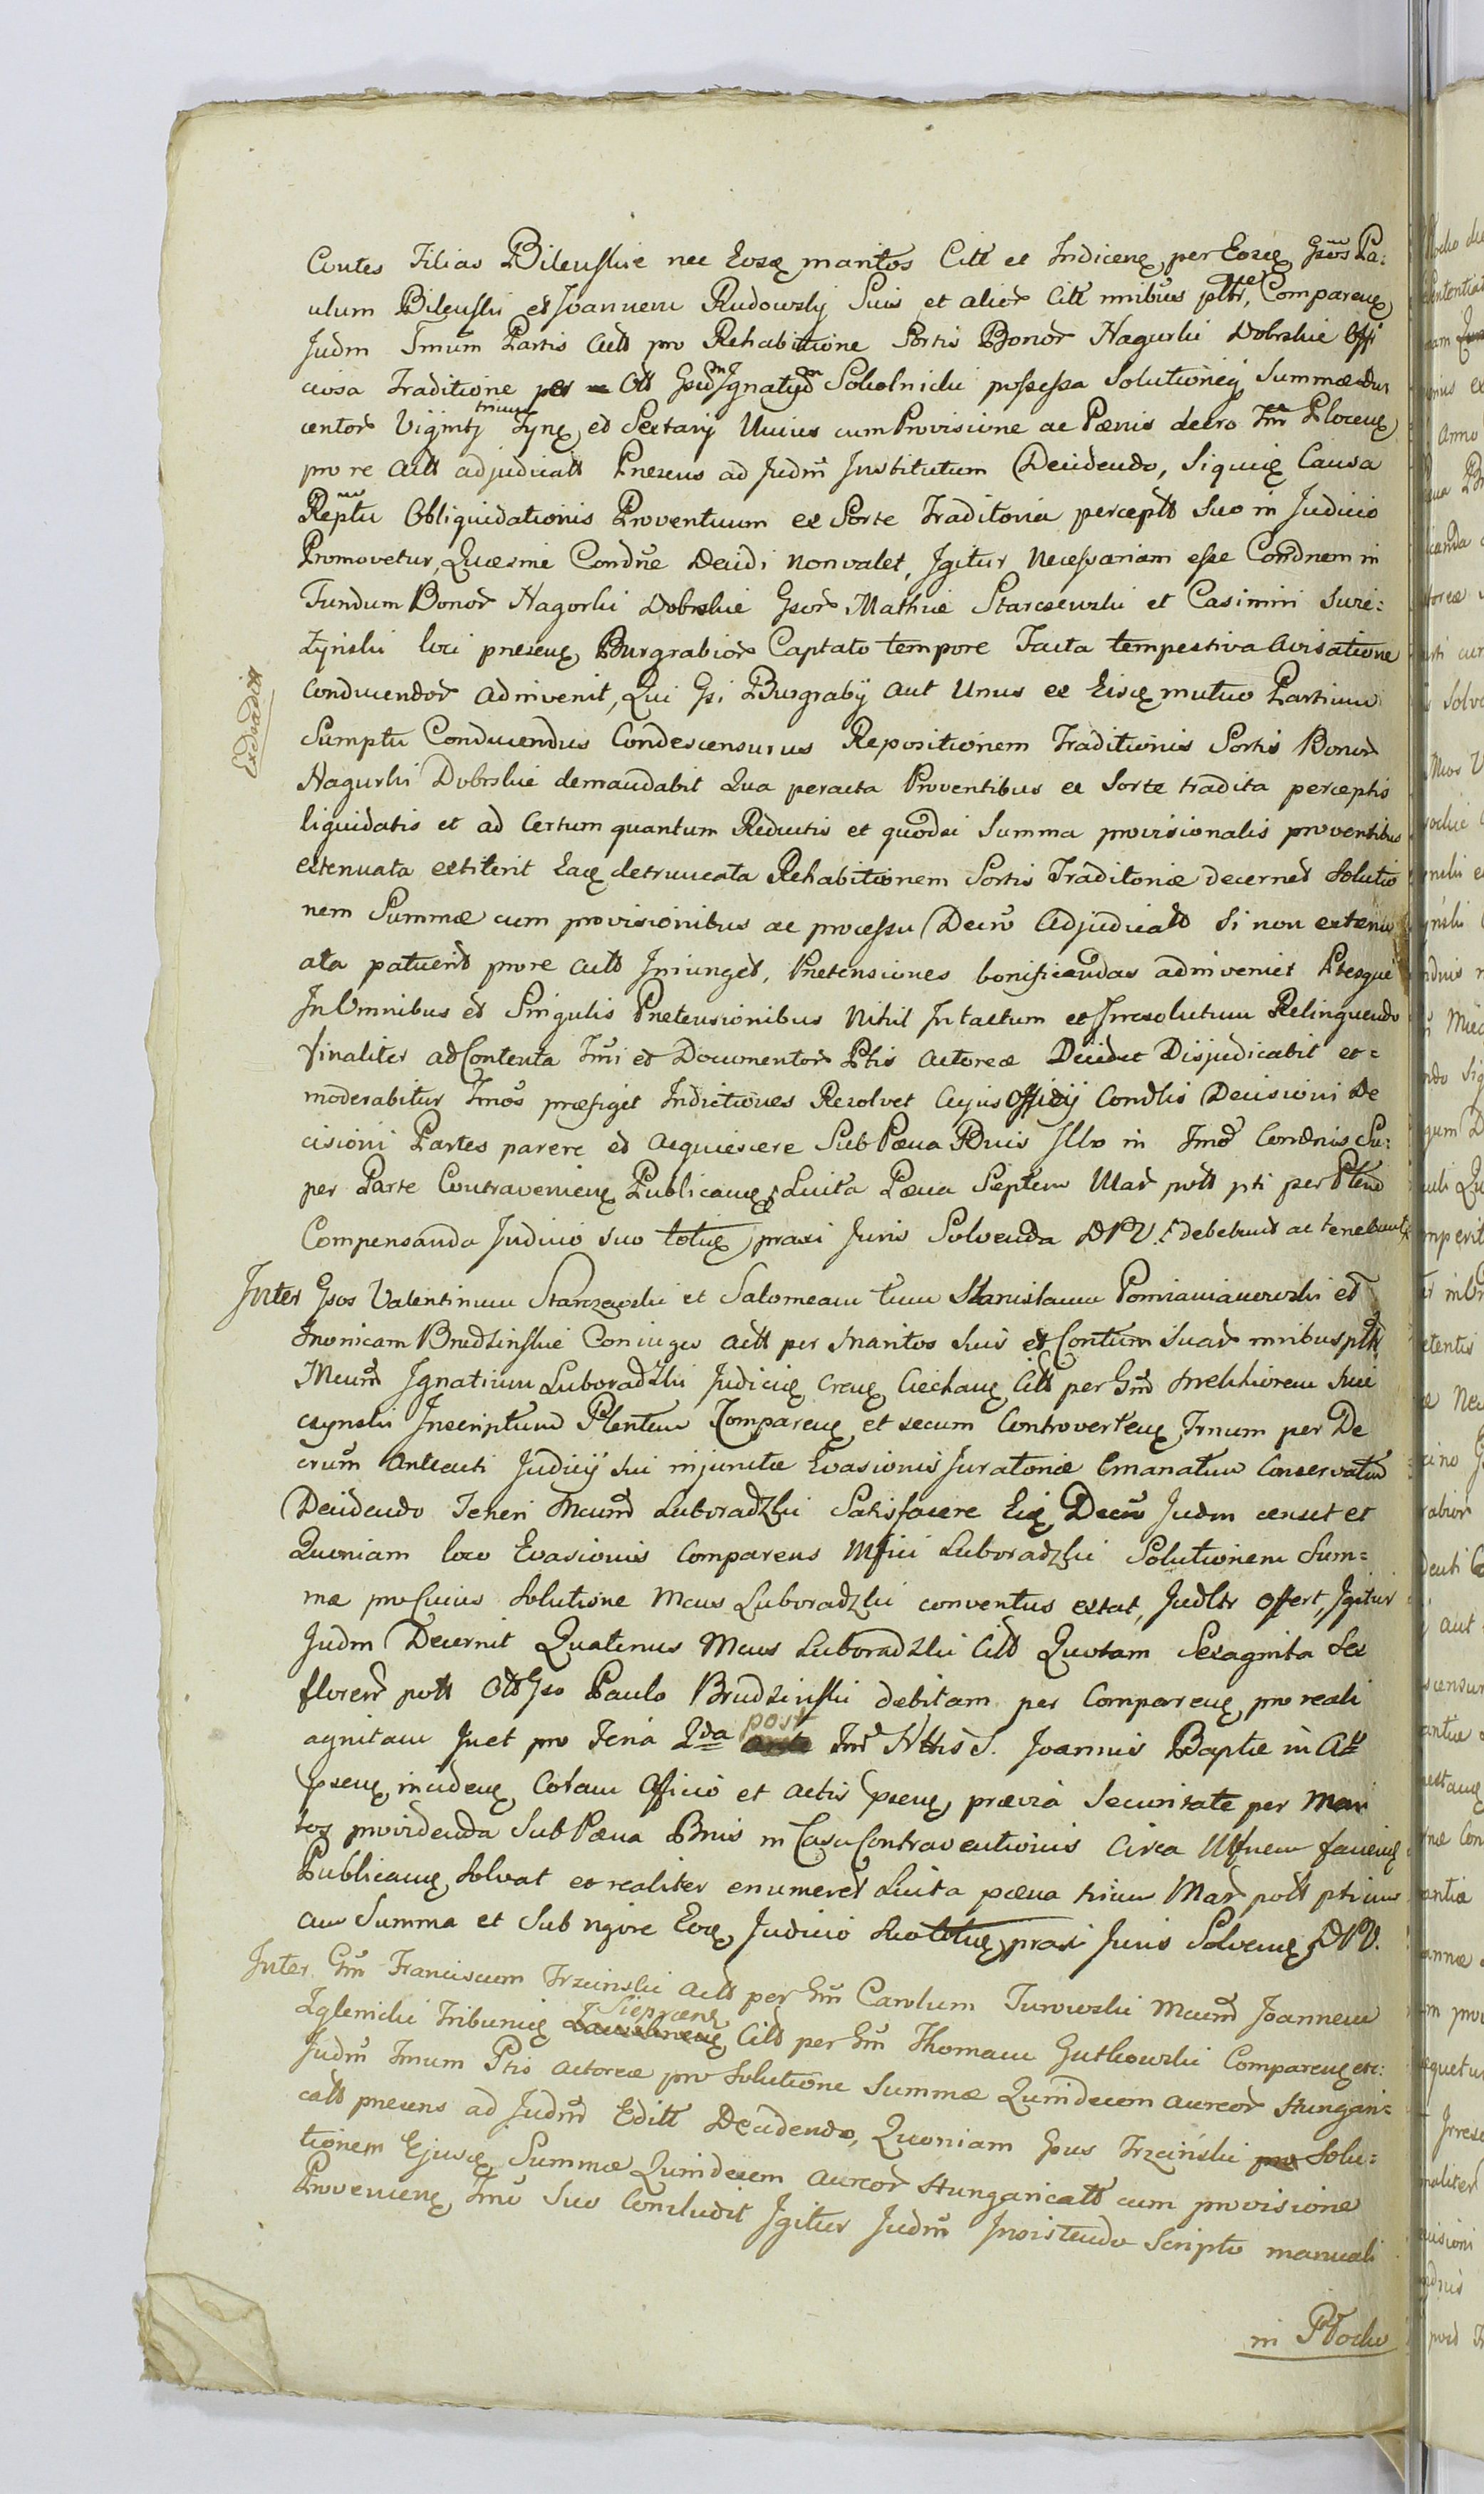 Contes Filias Bilenskie nec Eosq maritos Citt et Indiceñ per Eosq Gsos Pa:
ulum Bilenski et Joannem Rudowsky Suis et alior Citt nnibus plltr, Compareñ
Judm Tmum Partis Actt pro Rehabitione Sortis Bonor Nagurki Dobrskie Offi
ciosa Traditione per Ott Gsum Ignatium Sokolnicki possessa Solutioneq Summæ
centor Viginti trium et Sextarij Unius cum Provisione ac Pænis decro Floreñ
pro re Actt adjudicatt Præsens ad Judm Institutum Decidendo, Siquiq Causa
Reptu Obliquidationis Proventuum ex Sorte Traditoria perceptt Suo in Judicio
Promovetur, Quæ sine Condne Decidi non valet, Igitur Necessariam esse Condnem in
Fundum Bonor Nagorki Dobrskie Gsor Mathiæ Starczewski et Casimiri Surzi:
Zynski loci præseñ Burgrabior Captato tempore Facta tempestiva Avisatione
Conducendor adinvenit, Qui Gsi Burgrabij aut Unus ex Eisq mutuo Partium
Sumptu Conducendus Condescensurus Repositionem Traditionis Sortis Bonor
Nagurki Dobrskie demandabit Qua peracta Proventibus ex Sorte tradita perceptis
liquidatis et ad Certum quantum Reductis et quodsi Summa provisionalis proventibus
extenuata extiterit Eaq detruncata Rehabitionem Sortis Traditoriæ decernet Solutio
nem Summæ cum provisionibus ac processu Decro Adjudicatt Si non extenu
ata patuerit pro re Actt Iniunget, Prætensiones bonificandas adinveniet Steque
In Omnibus et Singulis Prætensionibus Nihil Intactum et Irresolutum Relinquendo
finaliter ad Contenta Tmi et Documentor Ptis Actoreæ Decidet Disjudicabit et=
moderabitur Tmos præfiget Indictiones Resolvet Cujus Officij Condlis Decisioni De
cisioni Partes parere et Acquiescere Sub Pæna Bnis Illo in Tmo Condnis Su:
per Parte Contravenieñ Publicañ Luita Pæna Septem Mar pott pti per Pteno
Compensanda Judicio suo totiq praxi Juris Solvenda DPV. debebunt ac tenebunt
Exdndtt
Inter Gsos Valentinum Starczewski et Salomeam tum Stanislaum Pomianianowski et
Monicam Brudzinskie Coniuges Actt per Maritos Suis et Contum Suar nnibus plltr
Mcum Ignatium Luboradzki Judiciq Creñ Ciechañ Citt per Gsm Melchiorem Sui
czynski Inscriptum Plentem Compareñ et secum Controverteñ Tmum per De
crum Antecuti Judicij Sui injunctæ Evasionis Juratoriæ Emanatum Conservatum
Decidendo Teneri Mcum Luboradzki Satisfacere Eiq Decro Judm censet et
Quoniam loco Evasionis Comparens Mfici Luboradzki Solutionem Sum=
mæ pro Cuius Solutione Mcus Luboradzki conventus extat, Judltr Offert, Igitur
Judm Decernit Quatenus Mcus Luboradzki Citt Quotam Sexaginta Sex
floren pott Ott Gso Paulo Brudzinski debitam per Compareñ pro reali
agnitam Juet pro Feria 2da post Fm Nttis S. Joannis Baptæ in Att
pseñ incideñ Coram Officio et Actis pseñ prævia Securitate per Mari
tos providenda Sub Pæna Bnis in Casu Contraventionis Circa Mfnem
Publicañ Solvat et realiter enumeret Luita pæna trium Mar pott ptrium
cum Summa et Sub rigore Eoq Judicio Suo totiq praxi Juris Solveñ DPV.
Inter Gsm Franciscum Trzcinski Actt per Gsm Carolum Turowski Mcum Joannem
Zglenicki Tribuniq Sieprceñ Citt per Gsm Thomam Gutkowski Compareñ etc:
Judm Tmum Ptis Actoreæ pro Solutione Summæ Quindecem Aureor Hungari=
catt præsens ad Judm Editt Decidendo, Quoniam Gsus Trzcinski Solu=
tionem Ejusq Summæ Quindecem Aureor Hungaricatt cum provisione
Provenieñ Tmo Suo Concludit Igitur Judm Insistendo Scripto manuali
in Plocko